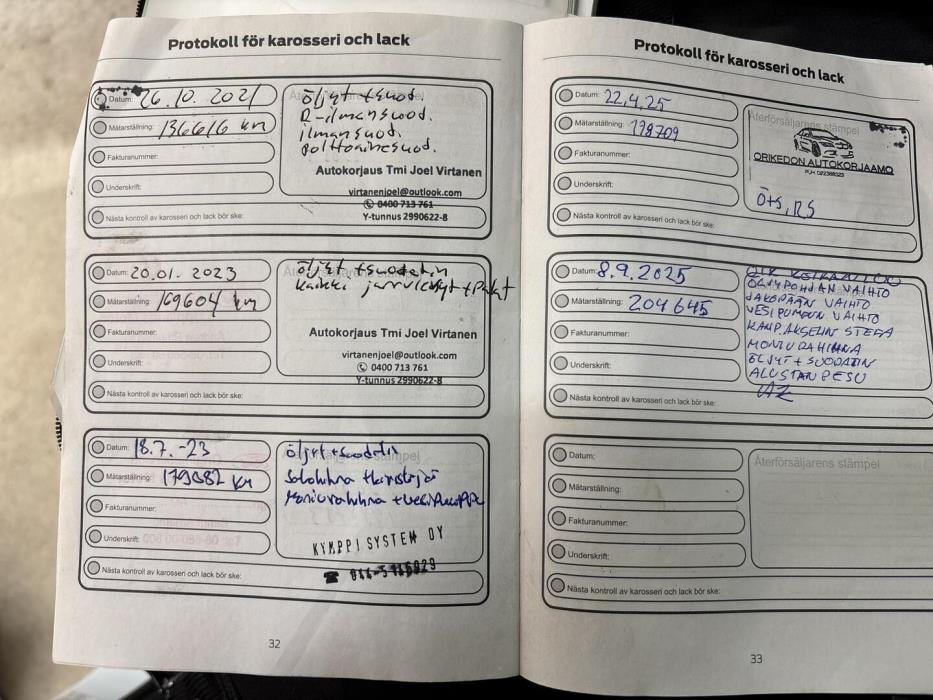 Protokoll för karosseri och lack
Datum: 26.10.2021
Mätarställning: 136616 km
Fakturanummer:
Underskrift:
Nästa kontroll av karosseri och lack bör ske:
öljyt + suod.
R-ilmansuod.
ilmansuod.
polttoainesuod.
Autokorjaus Tmi Joel Virtanen
virtanenjoel@outlook.com
0400 713 761
Y-tunnus 2990622-8
Datum: 20.01.2023
Mätarställning: 169604 km
Fakturanummer:
Underskrift:
Nästa kontroll av karosseri och lack bör ske:
öljyt + suodatin
kaikki jarrulevyt + palat
Autokorjaus Tmi Joel Virtanen
virtanenjoel@outlook.com
0400 713 761
Y-tunnus 2990622-8
Datum: 18.7.-23
Mätarställning: 179082 km
Fakturanummer:
Underskrift:
Nästa kontroll av karosseri och lack bör ske:
öljyt + suodatin
Jakohihna + kiristäjä
Moniurahihna + vesipumppu
KYMPPI SYSTEM OY
32
Protokoll för karosseri och lack
Datum: 22.4.25
Mätarställning: 198709
Fakturanummer:
Underskrift:
Nästa kontroll av karosseri och lack bör ske:
Återförsäljarens stämpel
ORIKEDON AUTOKORJAAMO
PUH 022388023
Ö+S, RS
Datum: 8.9.2025
Mätarställning: 204645
Fakturanummer:
Underskrift:
Nästa kontroll av karosseri och lack bör ske:
ÖLJYPOHJAN VAIHTO
JAKOPÄÄN VAIHTO
VESIPUMPUN VAIHTO
KAMP.AKSELIN STEFA
MONIURAHIHNA
ÖLJYT + SUODATIN
ALUSTAN PESU
Datum:
Mätarställning:
Fakturanummer:
Underskrift:
Nästa kontroll av karosseri och lack bör ske:
Återförsäljarens stämpel
33